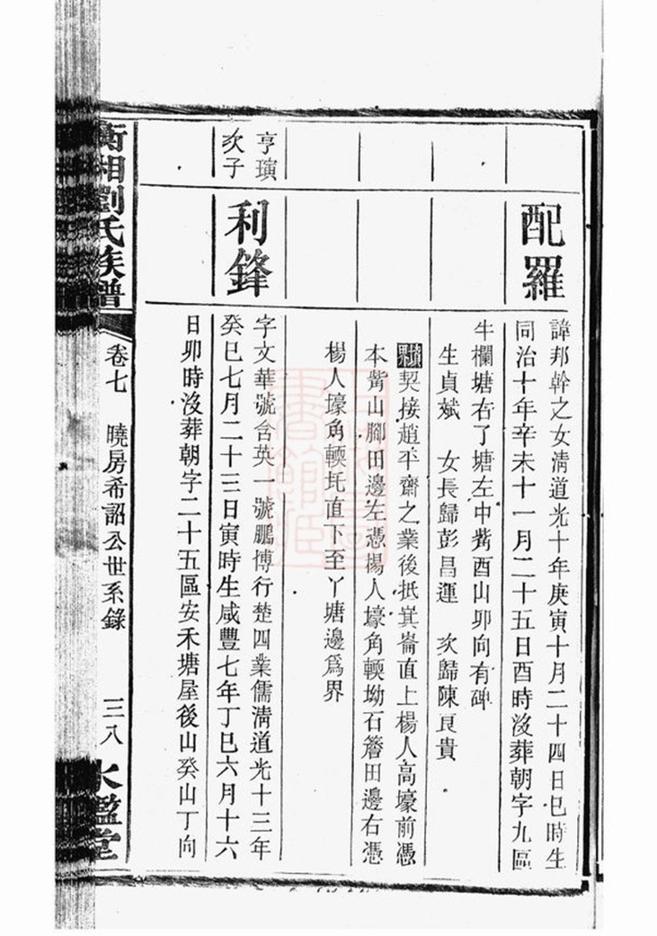 配羅
諱邦幹之女清道光十年庚寅十月二十四日巳時生
同治十年辛未十一月二十五日酉時没葬朝字九區
牛欄塘右了塘左中嘴酉山卯向有碑
生貞斌 女長歸彭昌運 次歸陳良貴
契接趙平齋之業後抵箕崙直上楊人高壕前憑
本嘴山腳田邊左憑楊人壕角輭坳石簷田邊右憑
楊人壕角輭圫直下至丫塘邊為界
亨璜
次子
利鋒
字文華號含英一號鵬博行楚四業儒清道光十三年
癸巳七月二十三日寅時生咸豐七年丁巳六月十六
日卯時没葬朝字二十五區安禾塘屋後山癸山丁向
衡湘劉氏族譜
卷七 曉房希詔公世系錄 三八
鑑堂